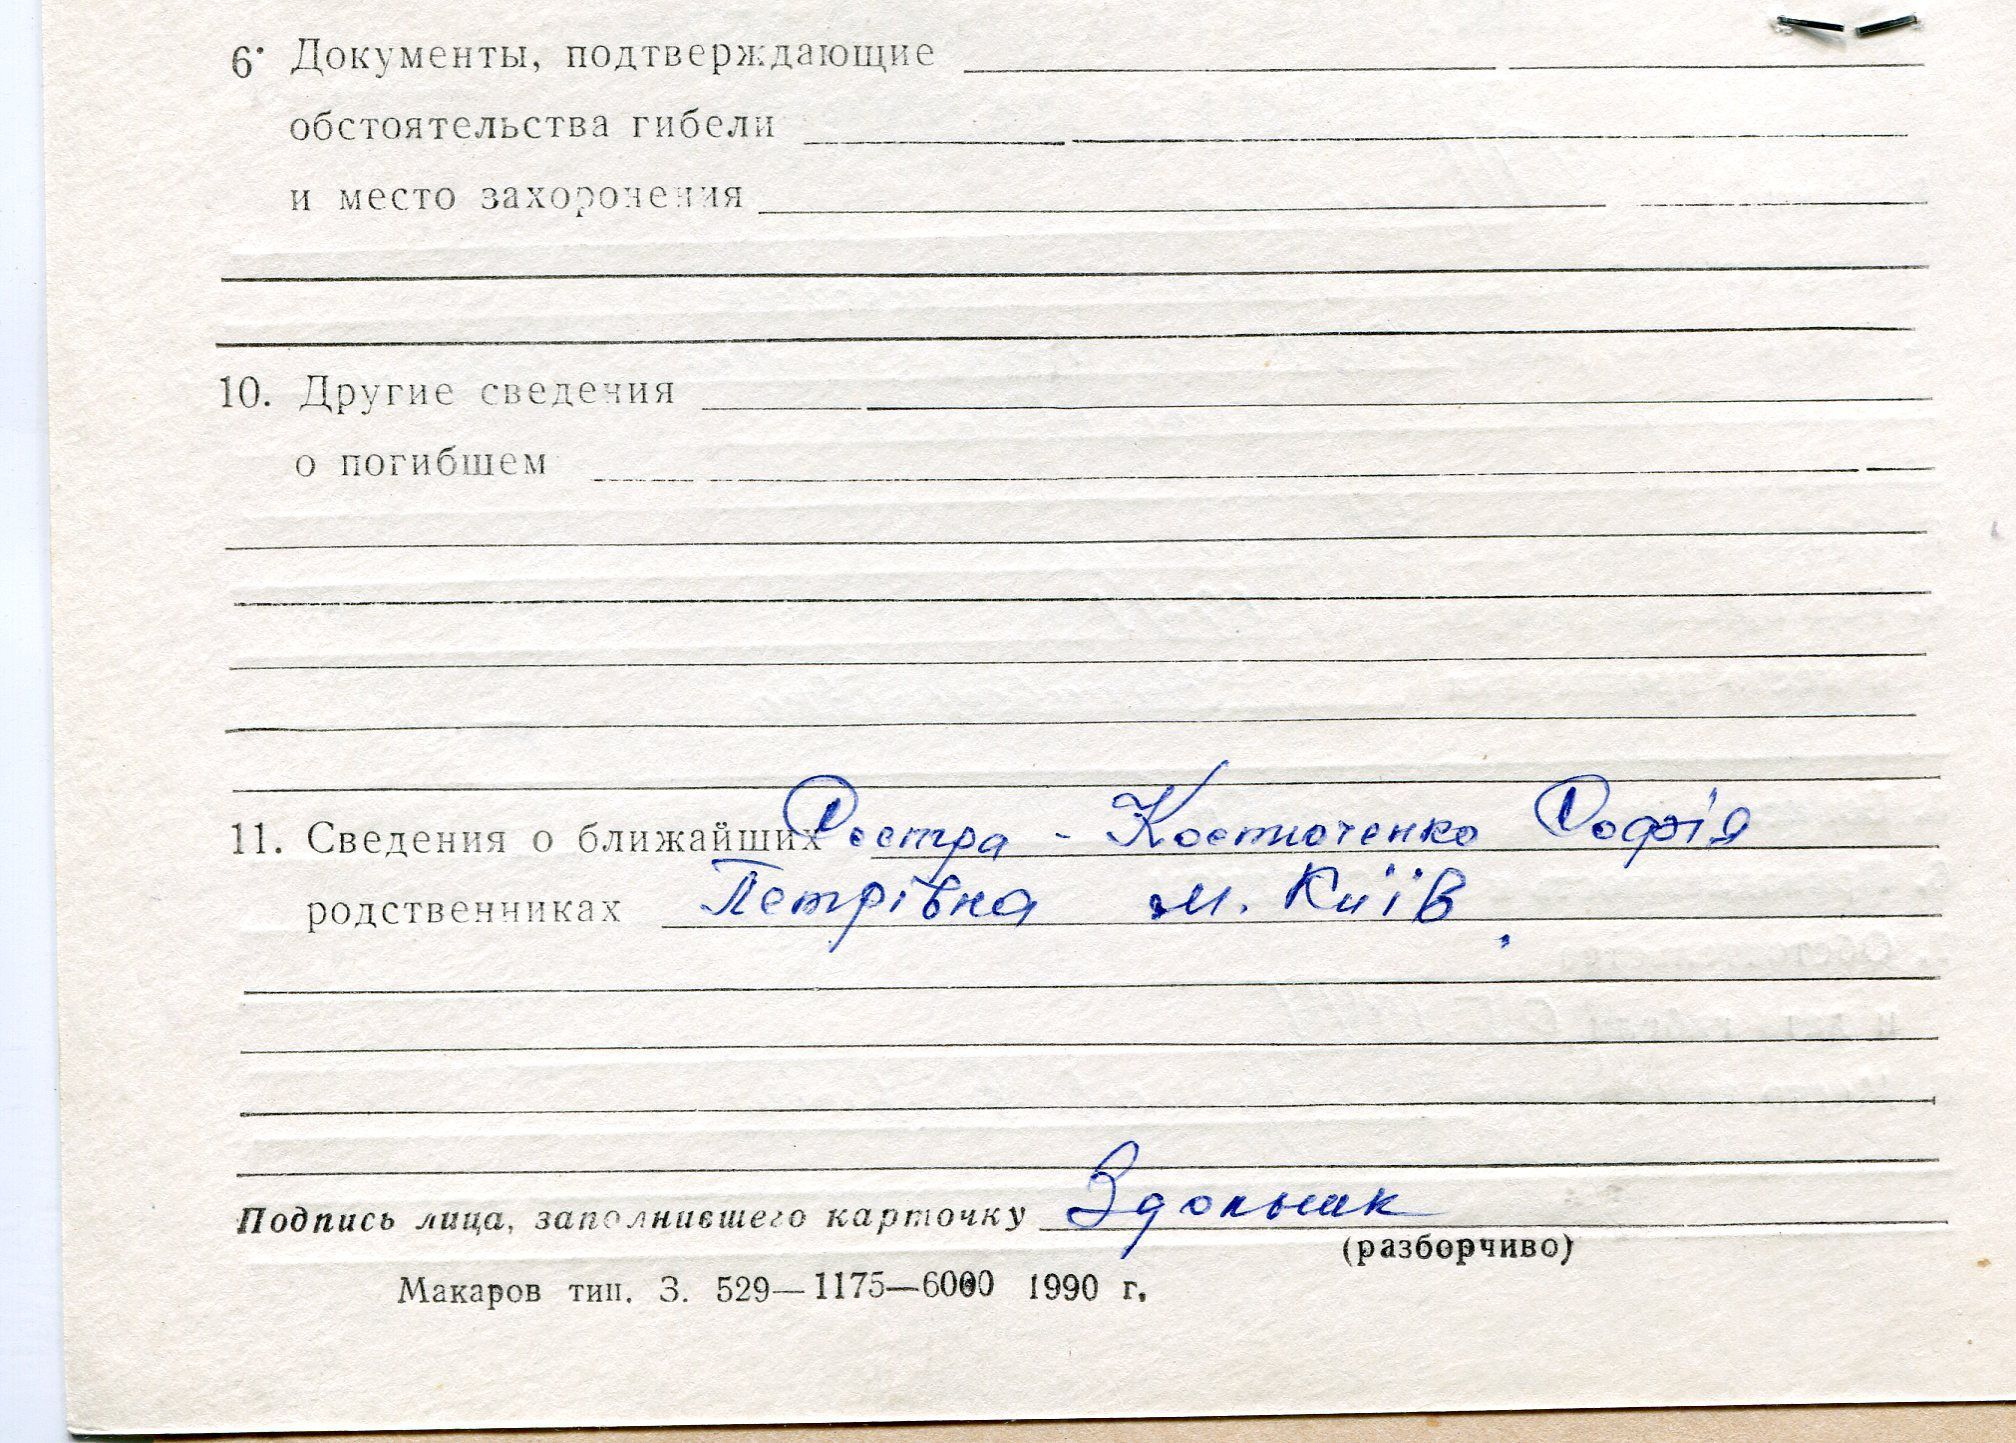 6. Документы, подтверждающие
обстоятельства гибели
и место захоронения
10. Другие сведения
о погибшем
11. Сведения о ближайших Сестра - Костюченко Софія
родственниках Петрівна м. Київ.
Подпись лица, заполнившего карточку Здольник
(разборчиво)
Макаров тип. З. 529—1175—6000 1990 г.